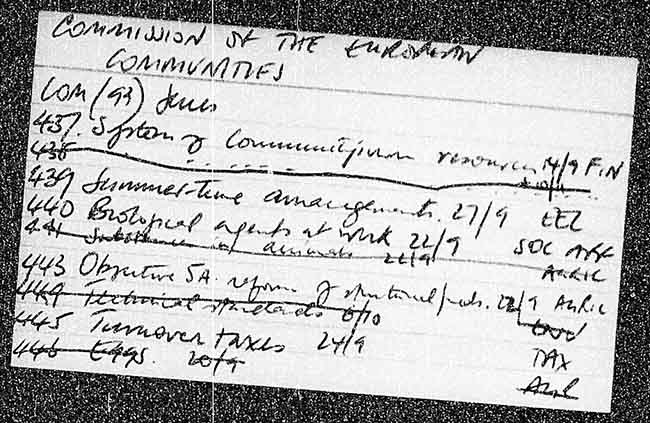 COMMISSION OF THE EUROPEAN
COMMUNITIES
COM (93) Series
437. System of Communities' own resources 14/9 FIN
438
439 Summer-time arrangements. 27/9 EEC
440 Biological agents at work 22/9 SOC AFF
441 Substances in animals 22/9 AGRIC
443 Objective 5A. reform of structural funds. 22/9 AGRIC
449 Technical standards 6/10
445 Turnover taxes 24/9 TAX
446 Eggs. 20/9